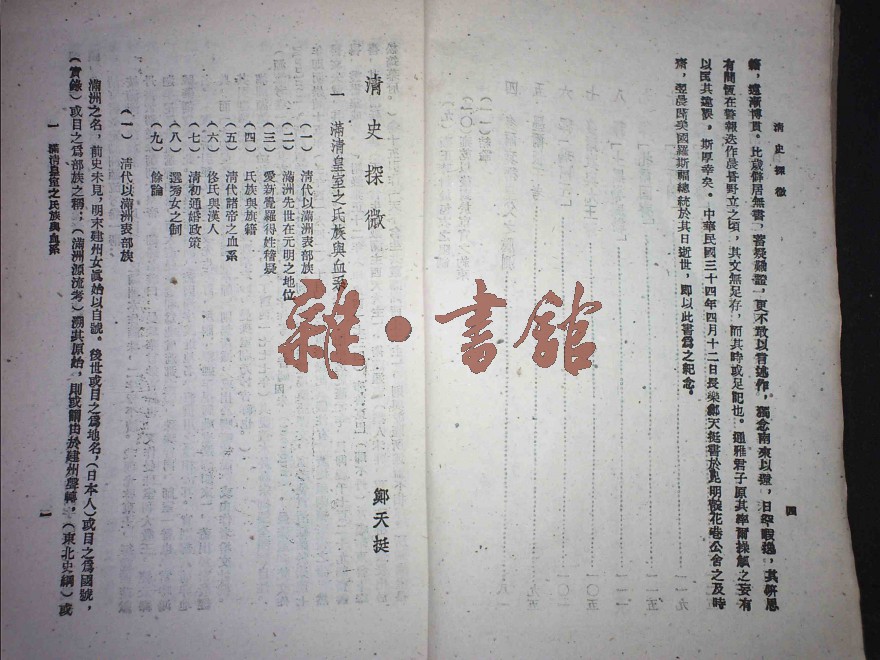 清史探微
四
籍，遠漸博貫。比歲僻居無書，蓄疑難證，更不敢以言述作，獨念南來以還，日罕暇逸，其研思
有間恆在警報迭作晨昏野立之頃，其文無足存，而其時或足記也。通雅君子原其率爾操觚之妄有
以匡其違誤。斯厚幸矣。中華民國三十四年四月十二日長樂鄭天挺書於昆明靛花巷公舍之及時
齋，翌晨聞美國羅斯福總統於其日逝世，即以此書爲之紀念。
清史探微
鄭天挺
一 滿清皇室之氏族與血系
（一）清代以滿洲表部族
（二）滿洲先世在元明之地位
（三）愛新覺羅得姓稽疑
（四）氏族與族籍
（五）清代諸帝之血系
（六）佟氏與漢人
（七）清初通婚政策
（八）選秀女之制
（九）餘論
（一）清代以滿洲表部族
滿洲之名，前史未見，明末建州女眞始以自號。後世或目之爲地名，（日本人）或目之爲國號，
（實錄）或目之爲部族之稱；（滿洲源流考）溯其原始，則或謂由於建州聲轉，（東北史綱）或
一 滿清皇室之氏族與血系
一
雜·書館